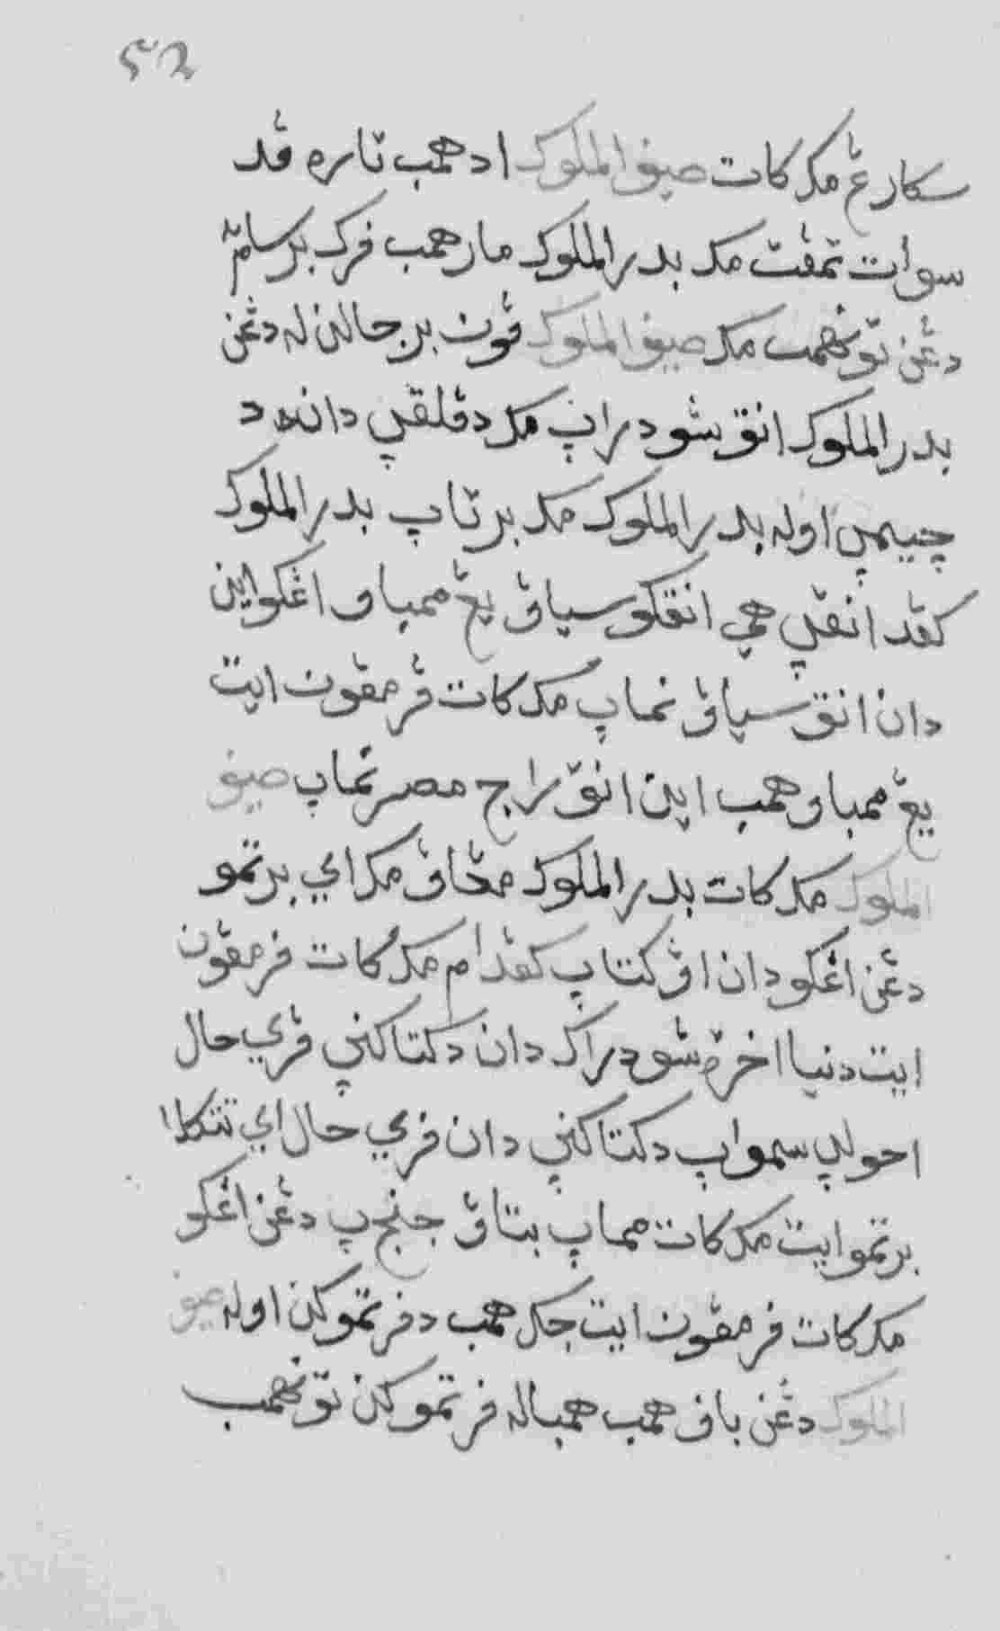 ٥٢
سكارڠ مک کات صيف الملوک اد همب تاره ڤد
سوات تمڤت مک بدر الملوک مار همب ڤرک برسام٢
دڠن تونهمب مک صيف الملوک ڤون برجالنله دڠن
بدر الملوک انق شودراڽ مک دڤلقڽ دان د
چيمڽ اوله بدر الملوک مک برتاڽ بدر الملوک
کڤد انقڽ هي انقکو سياڤ يڠ ممباو اڠکو اين
دان انق سياڤ نماڽ مک کات ڤرمڤون ايت
يڠ ممباو همب اين انق راج مصر نماڽ صيف
الملوک مک کات بدر الملوک مڠاڤ مک اي برتمو
دڠن اڠکو دان اڤ کتاڽ کڤدام مک کات ڤرمڤون
ايت دنيا اخرة شودراک دان دکتاکنڽ ڤري حال
احولڽ سمواڽ دکتاکنڽ دان ڤري حال اي تتکلا
برتمو ايت مک کات مماڽ بتاڤ جنجيڽ دڠن اڠکو
مک کات ڤرمڤون ايت جک همب دڤرتموکن اوله صيف
الملوک دڠن باڤ همب همباله ڤرتموکن تونهمب